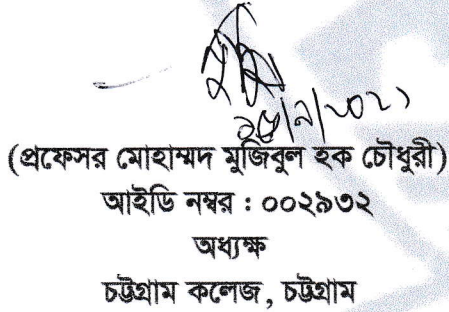 (প্রফেসর মোহাম্মদ মুজিবুল হক চৌধুরী)
আইডি নম্বর : ০০২৯৩২
অধ্যক্ষ
চট্টগ্রাম কলেজ, চট্টগ্রাম